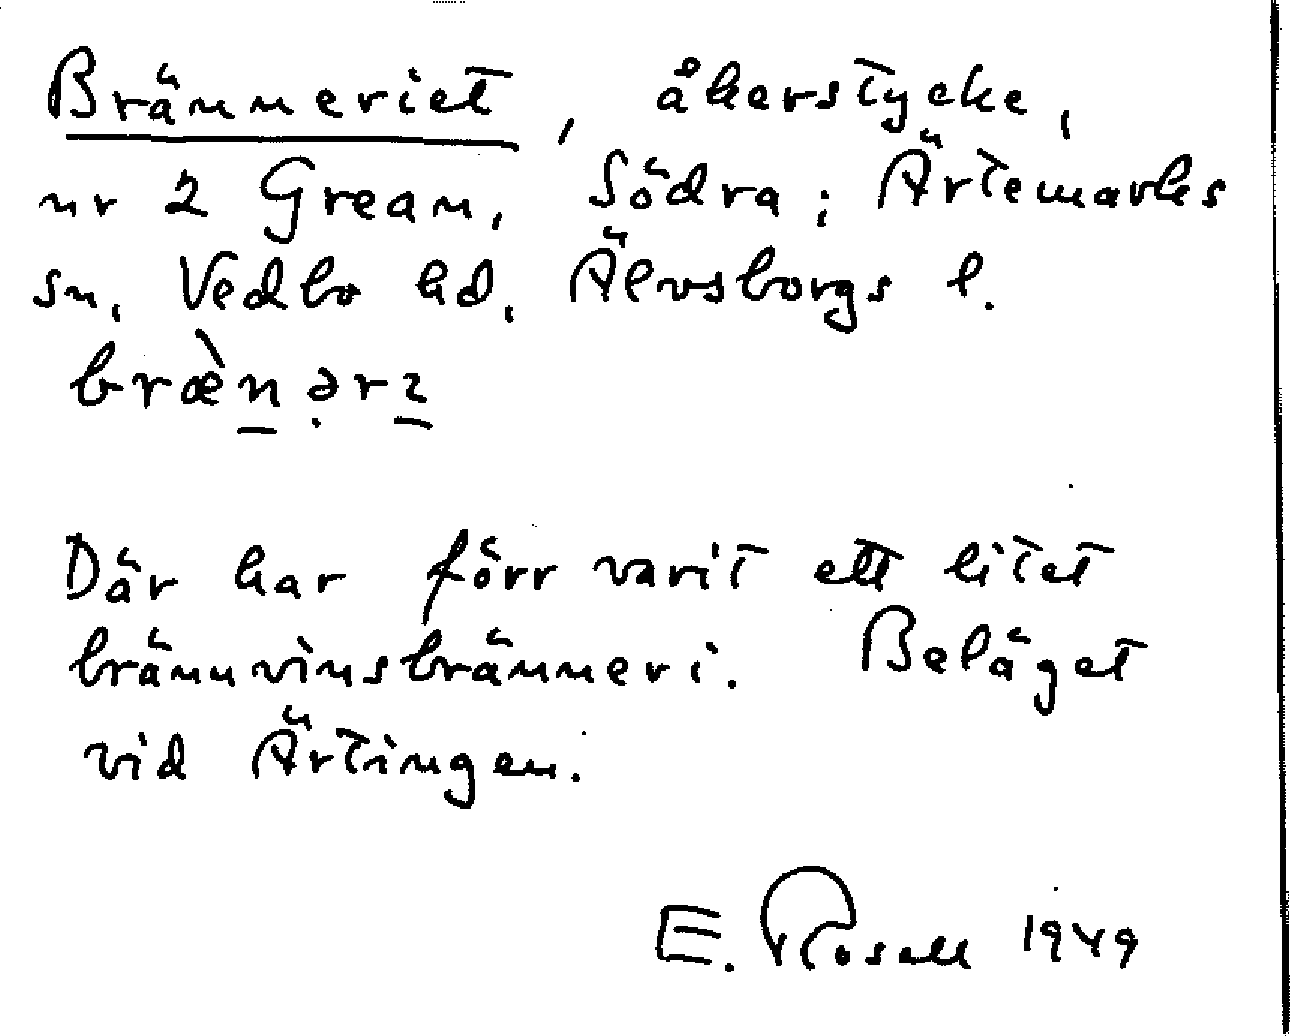 Bränneriet, åkerstycke,
nr 2 Grean, Södra; Ärtemarks
sn, Vedbo hd, Älvsborgs l.
bræ̀n̲ə̣rɿ̲
Där har förr varit ett litet
brännvinsbränneri. Beläget
vid Ärtingen.
E. Rosell 1949